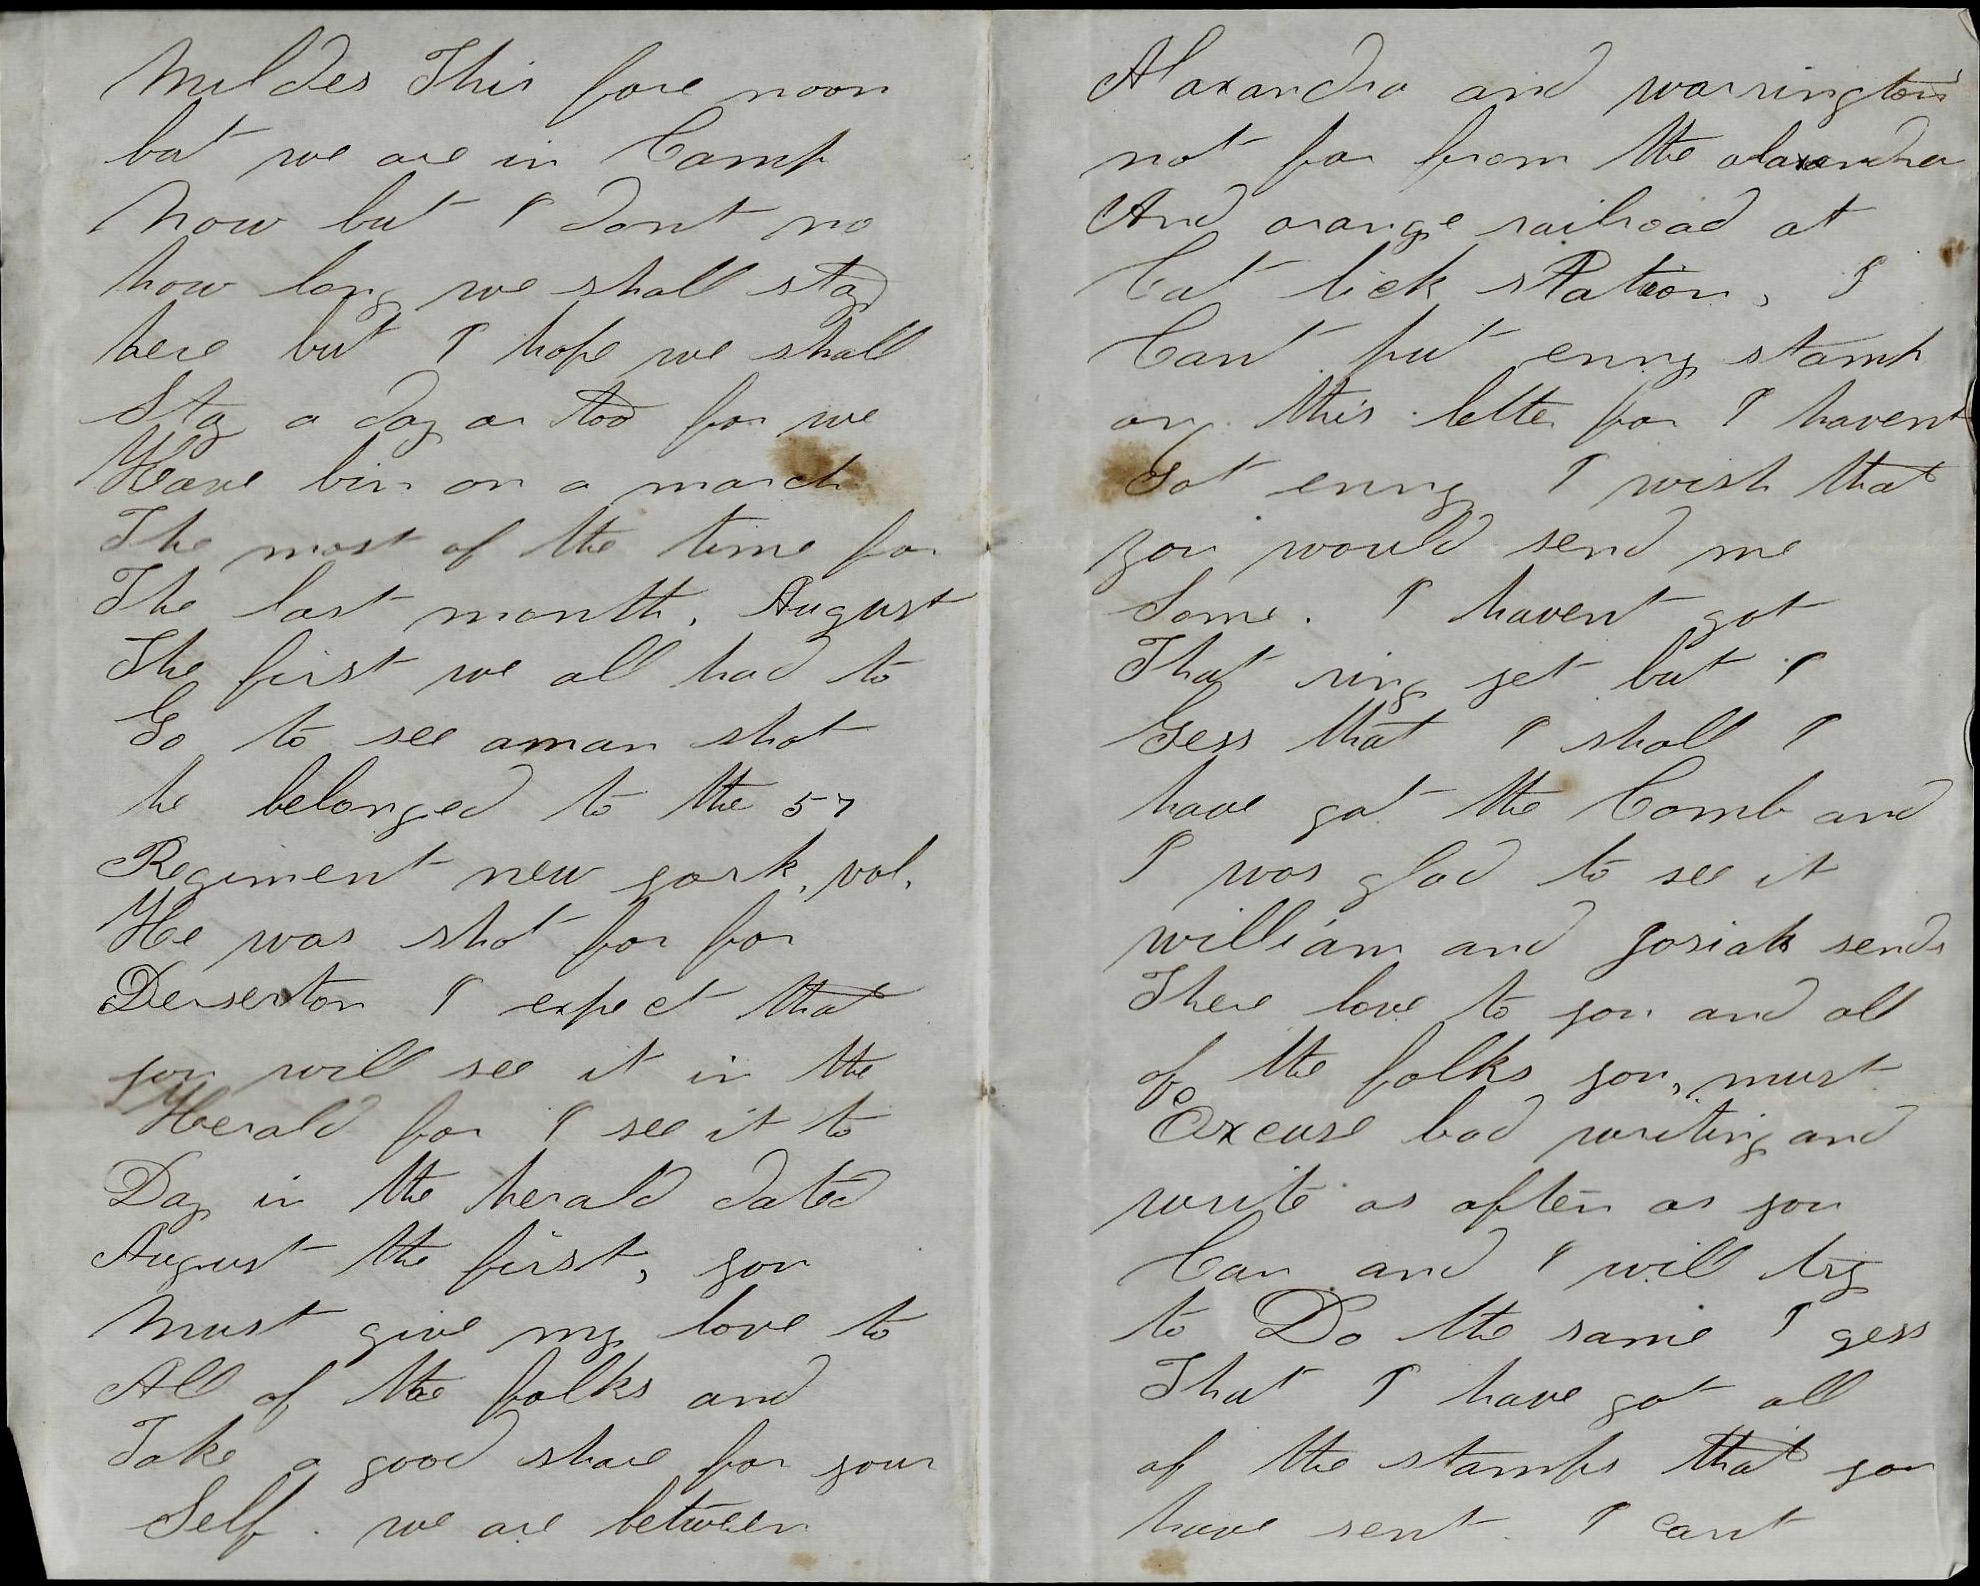 Mildes This fore noon
but we are in Camp
Now but I dont no
how long we shall stay
here but I hope we shall
Stay a day or too for we
Have bin on a march
The most of the time for
The last month, August
The first we all had to
Go to see aman shot
he belonged to the 57
Regiment new york, vol,
He was shot for for
Deserton I expect that
you will see it in the
Herald for I see it to
Day in the herald dated
August the first, you
Must give my love to
All of the folks and
Take a good share for your
Self. we are between
Alaxandra and warrington
not far from the alaxandra
And orange railroad at
Cat lick station, I
Cant put enny stamp
on this letter for I havent
Got enny I wish that
you would send me
Some. I havent got
That ring yet but I
Gess that I shall I
have got the Comb and
I was glad to see it
william and Josiah sends
There love to you and all
of the folks you, must
Excuse bad writing and
write as often as you
Can and I will try
to Do the same I gess
That I have got all
of the stamps that you
have sent. I cant